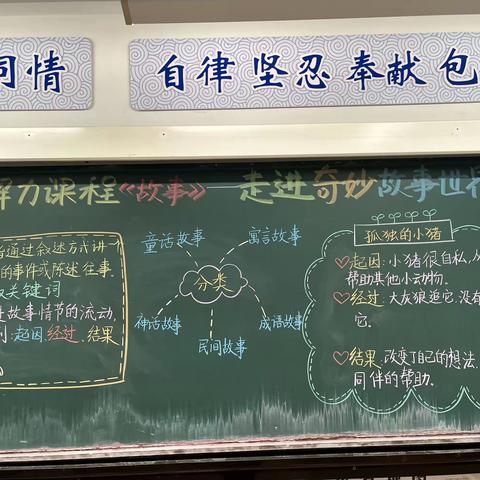 同情
自律 坚忍 奉献 包
解力课程《故事》 走进奇妙故事世界
通过叙述方式讲
的事件或陈述往事.
关键词
故事情节的流动,
:起因,经过,结果
童话故事
寓言故事
分类
神话故事
民间故事
成语故事
孤独的小猪
起因:小猪很自私,从
帮助其他小动物.
经过:大灰狼追它,没有
它.
结果:改变了自己的想法
同伴的帮助.